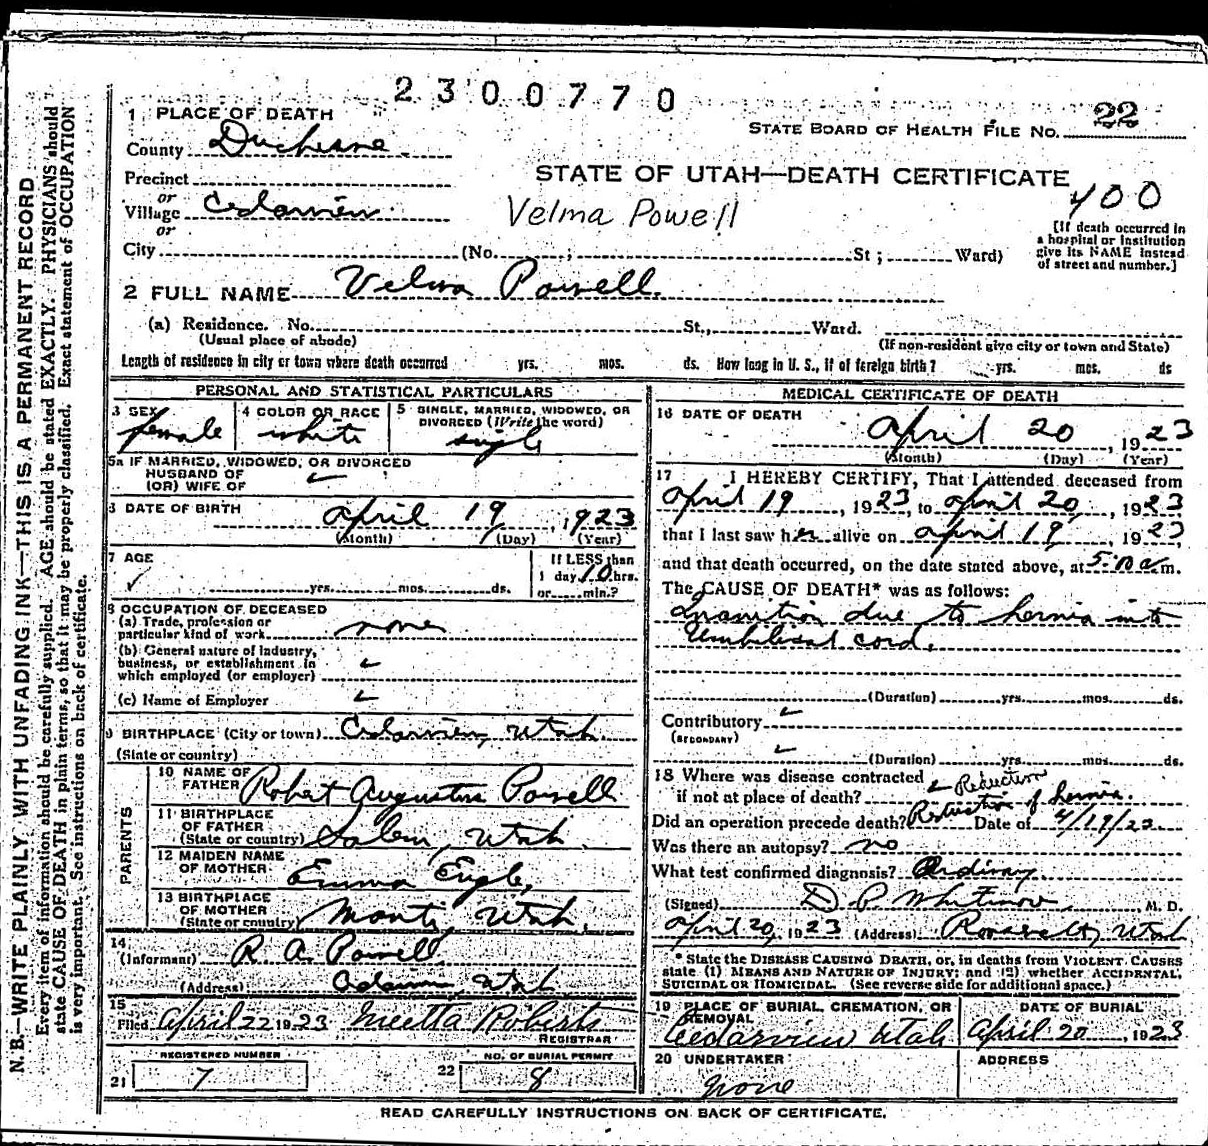 2300770
1 PLACE OF DEATH
STATE BOARD OF HEALTH FILE NO. 22
County Duchesne
Precinct
STATE OF UTAH—DEATH CERTIFICATE
or
Village Cedarview
Velma Powell
400
or
City (No. ; St ; Ward)
[If death occurred in
a hospital or institution
give its NAME instead
of street and number.]
2 FULL NAME Velma Powell
(a) Residence. No. St., Ward.
(Usual place of abode)
(If non-resident give city or town and State)
Length of residence in city or town where death occurred yrs. mos. ds. How long in U. S., if of foreign birth? yrs. mos. ds
PERSONAL AND STATISTICAL PARTICULARS
3 SEX
female
4 COLOR OR RACE
white
5 SINGLE, MARRIED, WIDOWED, OR
DIVORCED (Write the word)
single
5a IF MARRIED, WIDOWED, OR DIVORCED
HUSBAND OF
(OR) WIFE OF
6 DATE OF BIRTH
april 19, 1923
(Month) (Day) (Year)
7 AGE
yrs. mos. ds.
If LESS than
1 day 10 hrs.
or min.?
8 OCCUPATION OF DECEASED
(a) Trade, profession or
particular kind of work none
(b) General nature of industry,
business, or establishment in
which employed (or employer)
(c) Name of Employer
9 BIRTHPLACE (City or town) Cedarview, Utah
(State or country)
PARENTS
10 NAME OF
FATHER Robert Augustus Powell
11 BIRTHPLACE
OF FATHER
(State or country) Salem, Utah.
12 MAIDEN NAME
OF MOTHER Emma Engle,
13 BIRTHPLACE
OF MOTHER
(State or country) Manti, Utah.
14
(Informant) R. A. Powell
(Address) Utah
15
Filed April 22 1923 Roberts
REGISTRAR
REGISTERED NUMBER
21 7
NO. OF BURIAL PERMIT
22 8
MEDICAL CERTIFICATE OF DEATH
16 DATE OF DEATH
April 20, 1923
(Month) (Day) (Year)
17 I HEREBY CERTIFY, That I attended deceased from
april 19, 1923, to april 20, 1923
that I last saw her alive on april 19, 1923
and that death occurred, on the date stated above, at 5: a.m.
The CAUSE OF DEATH* was as follows:
Inanition due to hernia into
Umbilical cord.
(Duration) yrs. mos. ds.
Contributory
(SECONDARY)
(Duration) yrs. mos. ds.
18 Where was disease contracted
if not at place of death?
Reduction
Did an operation precede death? Reduction of hernia. Date of 4/19/23
Was there an autopsy? no
What test confirmed diagnosis? Ordinary
(Signed) D P Whitmore, M. D.
april 20, 1923 (Address) Roosevelt, Utah
* State the DISEASE CAUSING DEATH, or, in deaths from VIOLENT CAUSES
state (1) MEANS AND NATURE OF INJURY; and (2) whether ACCIDENTAL,
SUICIDAL OR HOMICIDAL. (See reverse side for additional space.)
19 PLACE OF BURIAL, CREMATION, OR
REMOVAL
Cedarview Utah
DATE OF BURIAL
April 20, 1923
20 UNDERTAKER
None
ADDRESS
READ CAREFULLY INSTRUCTIONS ON BACK OF CERTIFICATE.
N. B.—WRITE PLAINLY WITH UNFADING INK—THIS IS A PERMANENT RECORD
Every item of information should be carefully supplied. AGE should be stated EXACTLY. PHYSICIANS should
state CAUSE OF DEATH in plain terms, so that it may be properly classified. Exact statement of OCCUPATION
is very important. See instructions on back of certificate.